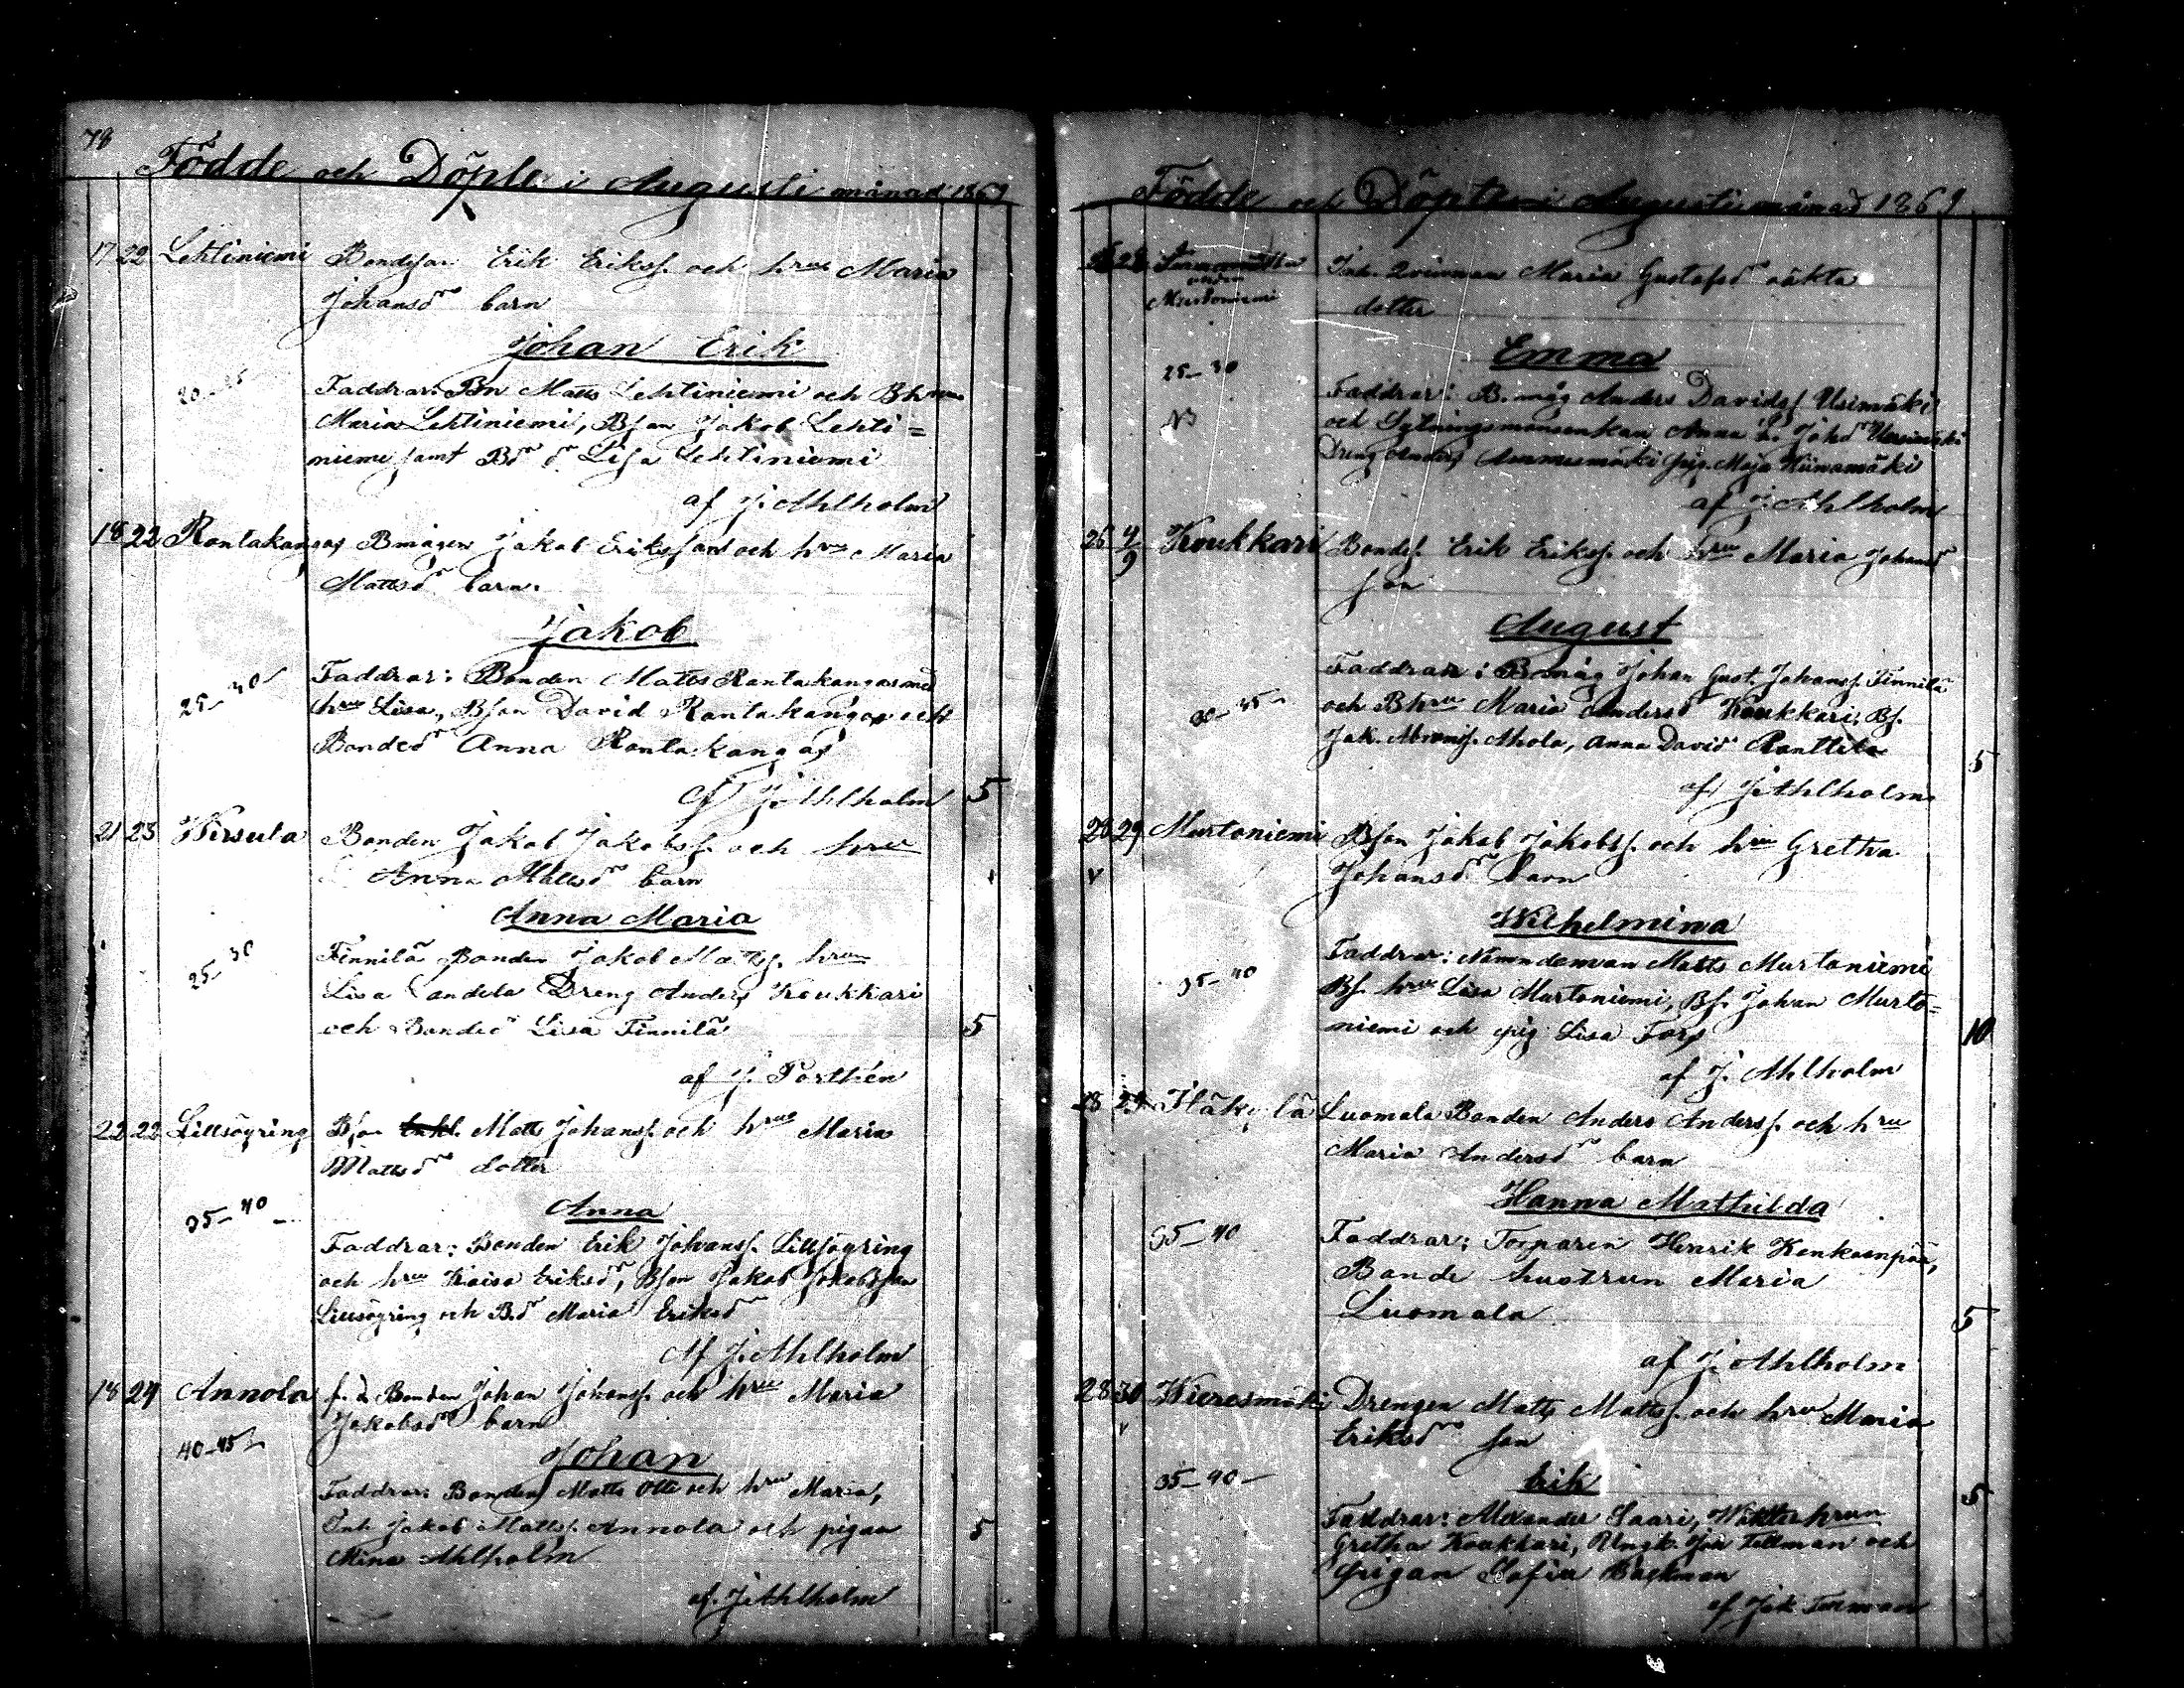 78
Födde och Döpte i Augusti månad 1869
17 22 Lehtiniemi Bondeson Erik Erikss. och hru Maria
Johansdr barn
Johan Erik
20-25 Faddrar: Bn Matts Lehtiniemi och Bhrun
Maria Lehtiniemi, Bson Jakob Lehti=
niemi samt Bdr Lisa Lehtiniemi
af J. Ahlholm
18 22 Rantakangas Bmågen Jakob Eriksson och hru Maria
Mattsdr barn.
Jakob
25-30 Faddrar: Bonden Matts Rantakangas med
hru Lisa, Bson David Rantakangas och
Bondedr Anna Rantakangas
af J. Ahlholm 5
21 23 Wirsula Bonden Jakob Jakobss. och hru
Anna Mattsdr barn
Anna Maria
25-30 Finnilä Bonden Jakob Mattss. hru
Lisa Dreng Anders Koukkari
och Bondedr Lisa Finnilä 5
af J. Porthén
22 22 Lillsöyring Bson Matts Johanss. och hru Maria
Mattsdr dotter
Anna
35-40 Faddrar: Bonden Erik Johanss. Lillsöyring
och hru Kaisa Eriksdr, Bson Jakob Jakobsson
Lillsöyring och B.dr Maria Eriksdr
af J. Ahlholm
18 24 Annola f.d. Bonden Johan Johanss. och hru Maria
Jakobsdr barn
40-45
Johan
Faddrar: Bonden Matts Otti och hru Maria,
Inh Jakob Mattss. Annola och pigan
Mina Ahlholm 5
af. J. Ahlholm
Födde och Döpte i Augusti månad 1869
Murtoniemi Inh. Qvinnan Maria Gustafsdr oäkta
dotter
Emma
25-30 Faddrar: B.måg Anders Davidss. Uusimäki
och Sytningsmansenkan Anna Johdr Uusimäki
Dreng Anders Ammesmäki pig. Maja Kiinamäki
af J. Ahlholm
26 4/9 Koukkari Bondes. Erik Erikss. och hru Maria Johansdr
son
August
Faddrar: Bmåg Johan Gust. Johanss. Finnilä
och Bhru Maria Andersdr Koukkari, Bs.
Jak. Ahola, Anna David Ranttila 5
af J. Ahlholm
28 29 Murtoniemi Bson Jakob Jakobss. och hru Gretha
Johansdr barn
Wilhelmina
35-40 Faddrar: Nämndeman Matts Murtoniemi
Bs. hru Lisa Murtoniemi, Bs. Johan Murto=
niemi och pig Lisa Fors 10
af J. Ahlholm
28 29 Luomala Bonden Anders Anderss. och hru
Maria Andersdr barn
Hanna Mathilda
35-40 Faddrar: Torparen Henrik Kenkaenpää,
Bonde hustrun Maria
Luomala 5
af J. Ahlholm
28 30 Wieresmäki Drengen Matts Mattss. och hru Maria
Eriksdr son
Erik
35-40
Faddrar: Alexander Saari, hrun 5
Gretha Koukkari, Ungk. Joh Tillman och
Pigan Sofia Backman
af Jak Forsman